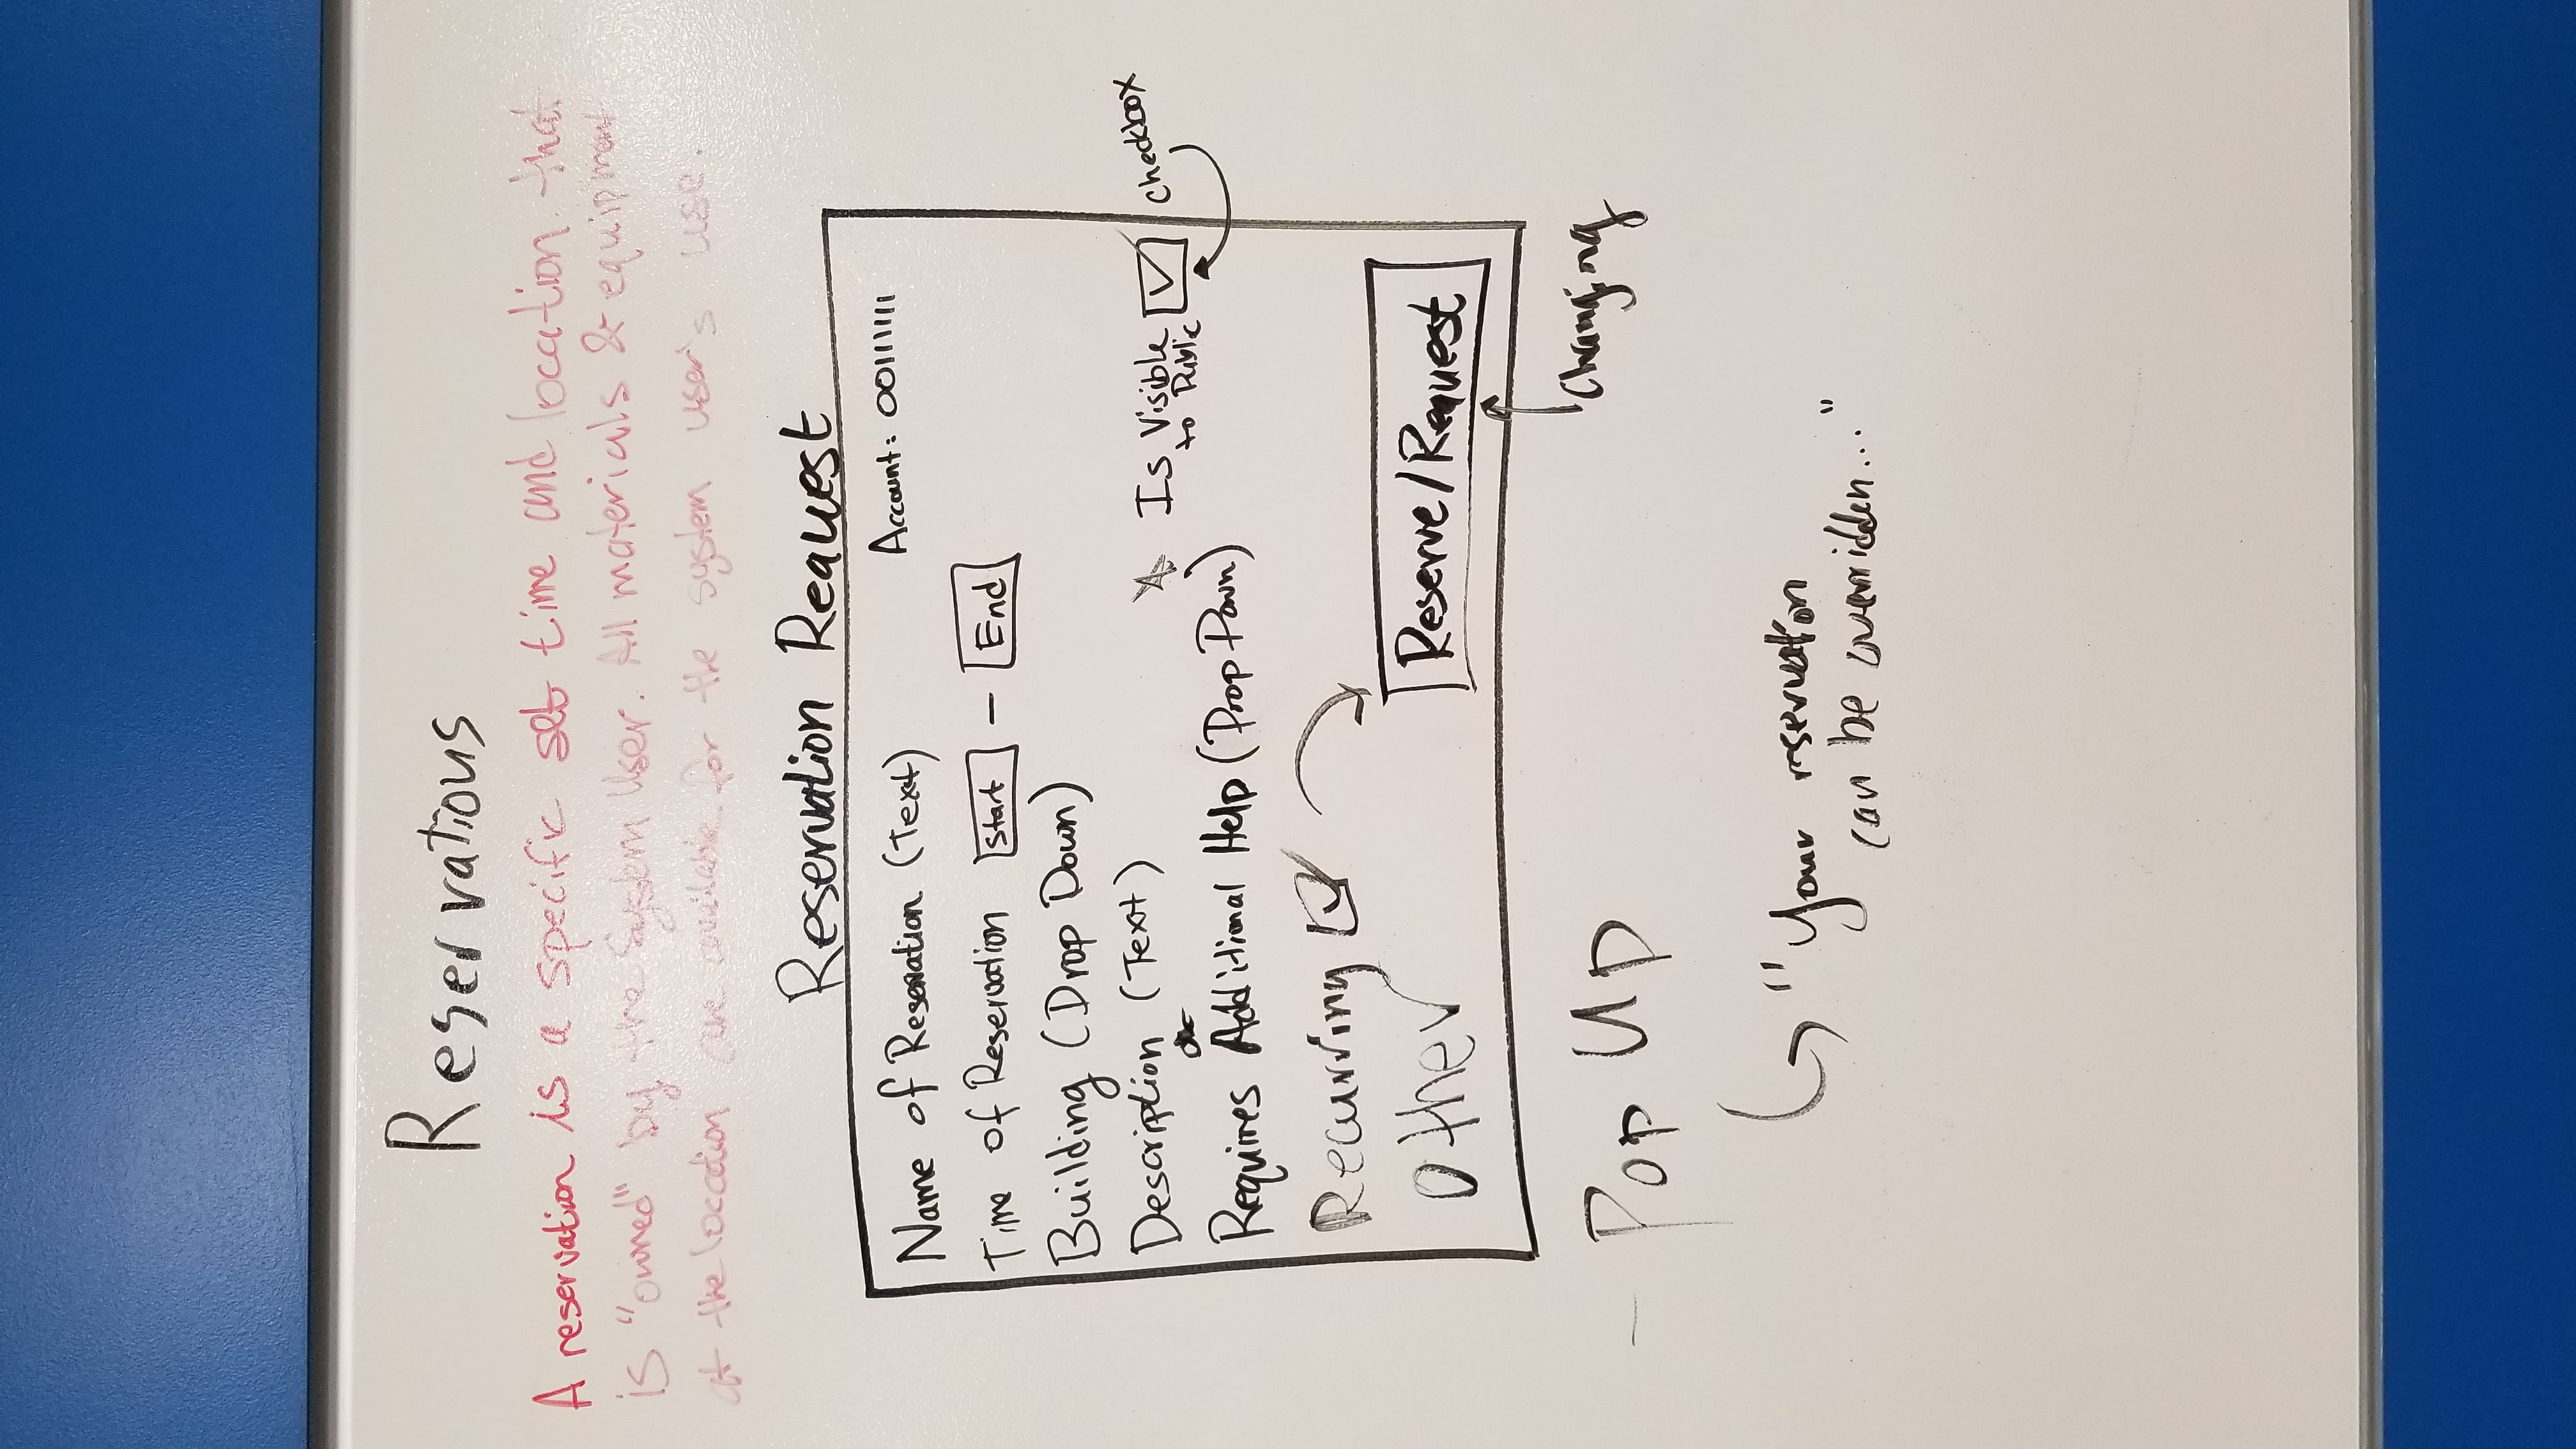 Reservations
A reservation is a specific set time and location that
is "owned" by the System User. All materials & equipment
at the location are available for the system user's use.
Reservation Request
Account: 00111111
Name of Reservation (Text)
Time of Reservation Start - End
Building (Drop Down)
Description (Text)
Is Visible
to Public
checkbox
Requires Additional Help (Drop Down)
Recurring
Other
Reserve/Request
Changing
- Pop Up
"Your reservation
can be overridden..."